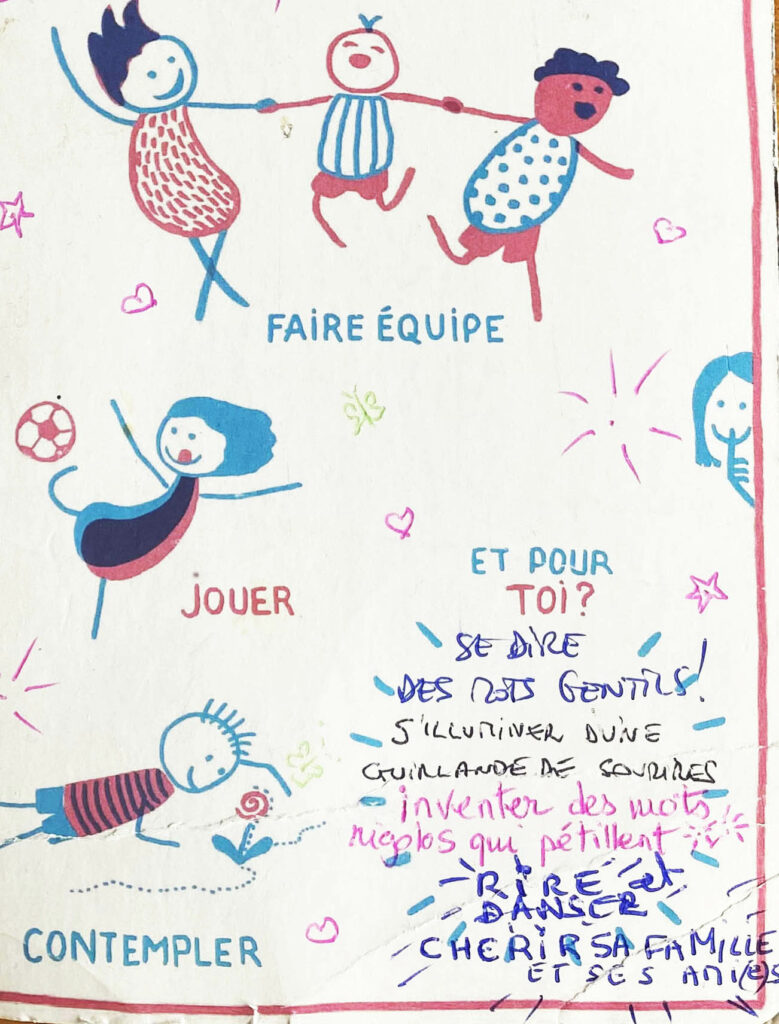 FAIRE ÉQUIPE
JOUER
ET POUR
TOI?
SE DIRE
DES MOTS GENTILS!
S'ILLUMINER D'UNE
GUIRLANDE DE SOURIRES
inventer des mots
rigolos qui pétillent
RIRE et
DANSER
CHERIR SA FAMILLE
ET SES AMI(E)S
CONTEMPLER